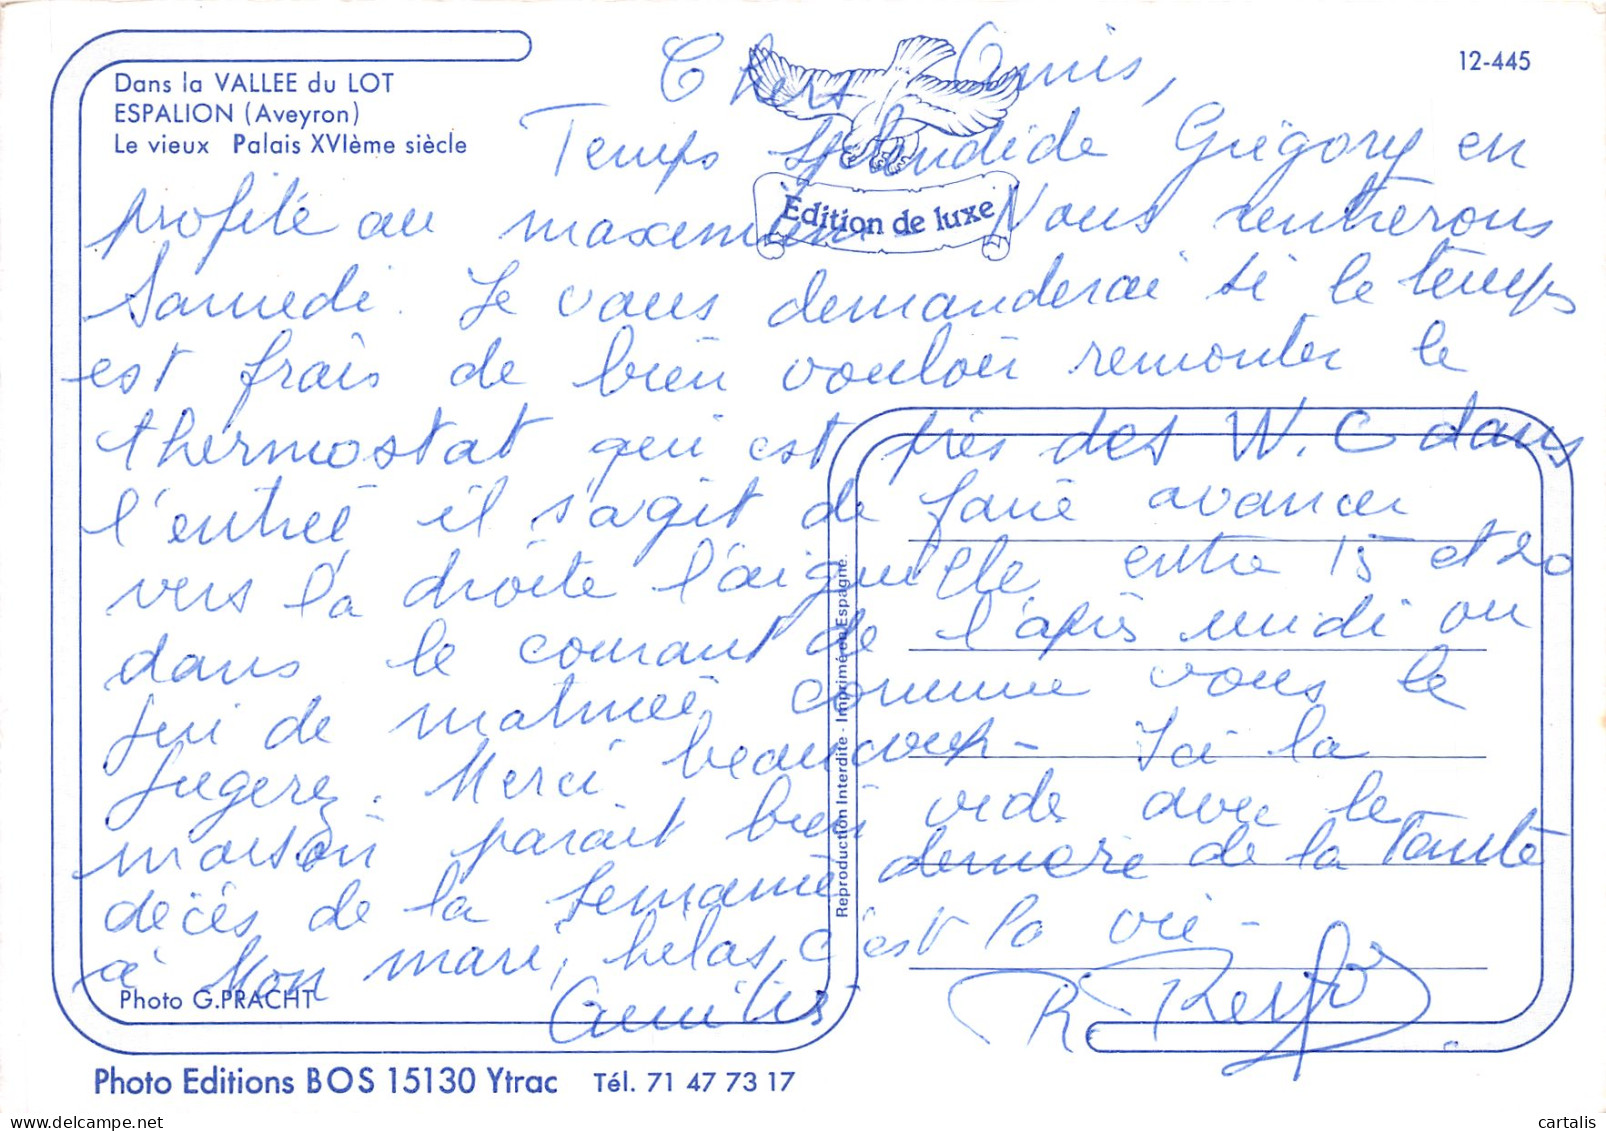 Dans la VALLEE du LOT
ESPALION (Aveyron)
Le vieux Palais XVIème siècle
12-445
Edition de luxe
Chers Amis,
Temps splendide Grégory en
profite au maximum Nous rentrerons
Samedi. Je vous demanderai si le temps
est frais de bien vouloir remonter le
thermostat qui est près des W.C dans
l'entrée il s'agit de faire avancer
vers la droite l'aiguille, entre 15 et 20
dans le courant de l'après midi ou
fin de matinée, comme vous le
jugerez. Merci beaucoup - Ici la
maison parait bien vide avec le
décès de la semaine dernière de la Tante
à Mon mari, hélas, c'est la vie -
Amitiés
R.
Reproduction Interdite - Imprimé en Espagne.
Photo G.PRACHT
Photo Editions BOS 15130 Ytrac Tél. 71 47 73 17
cartalis